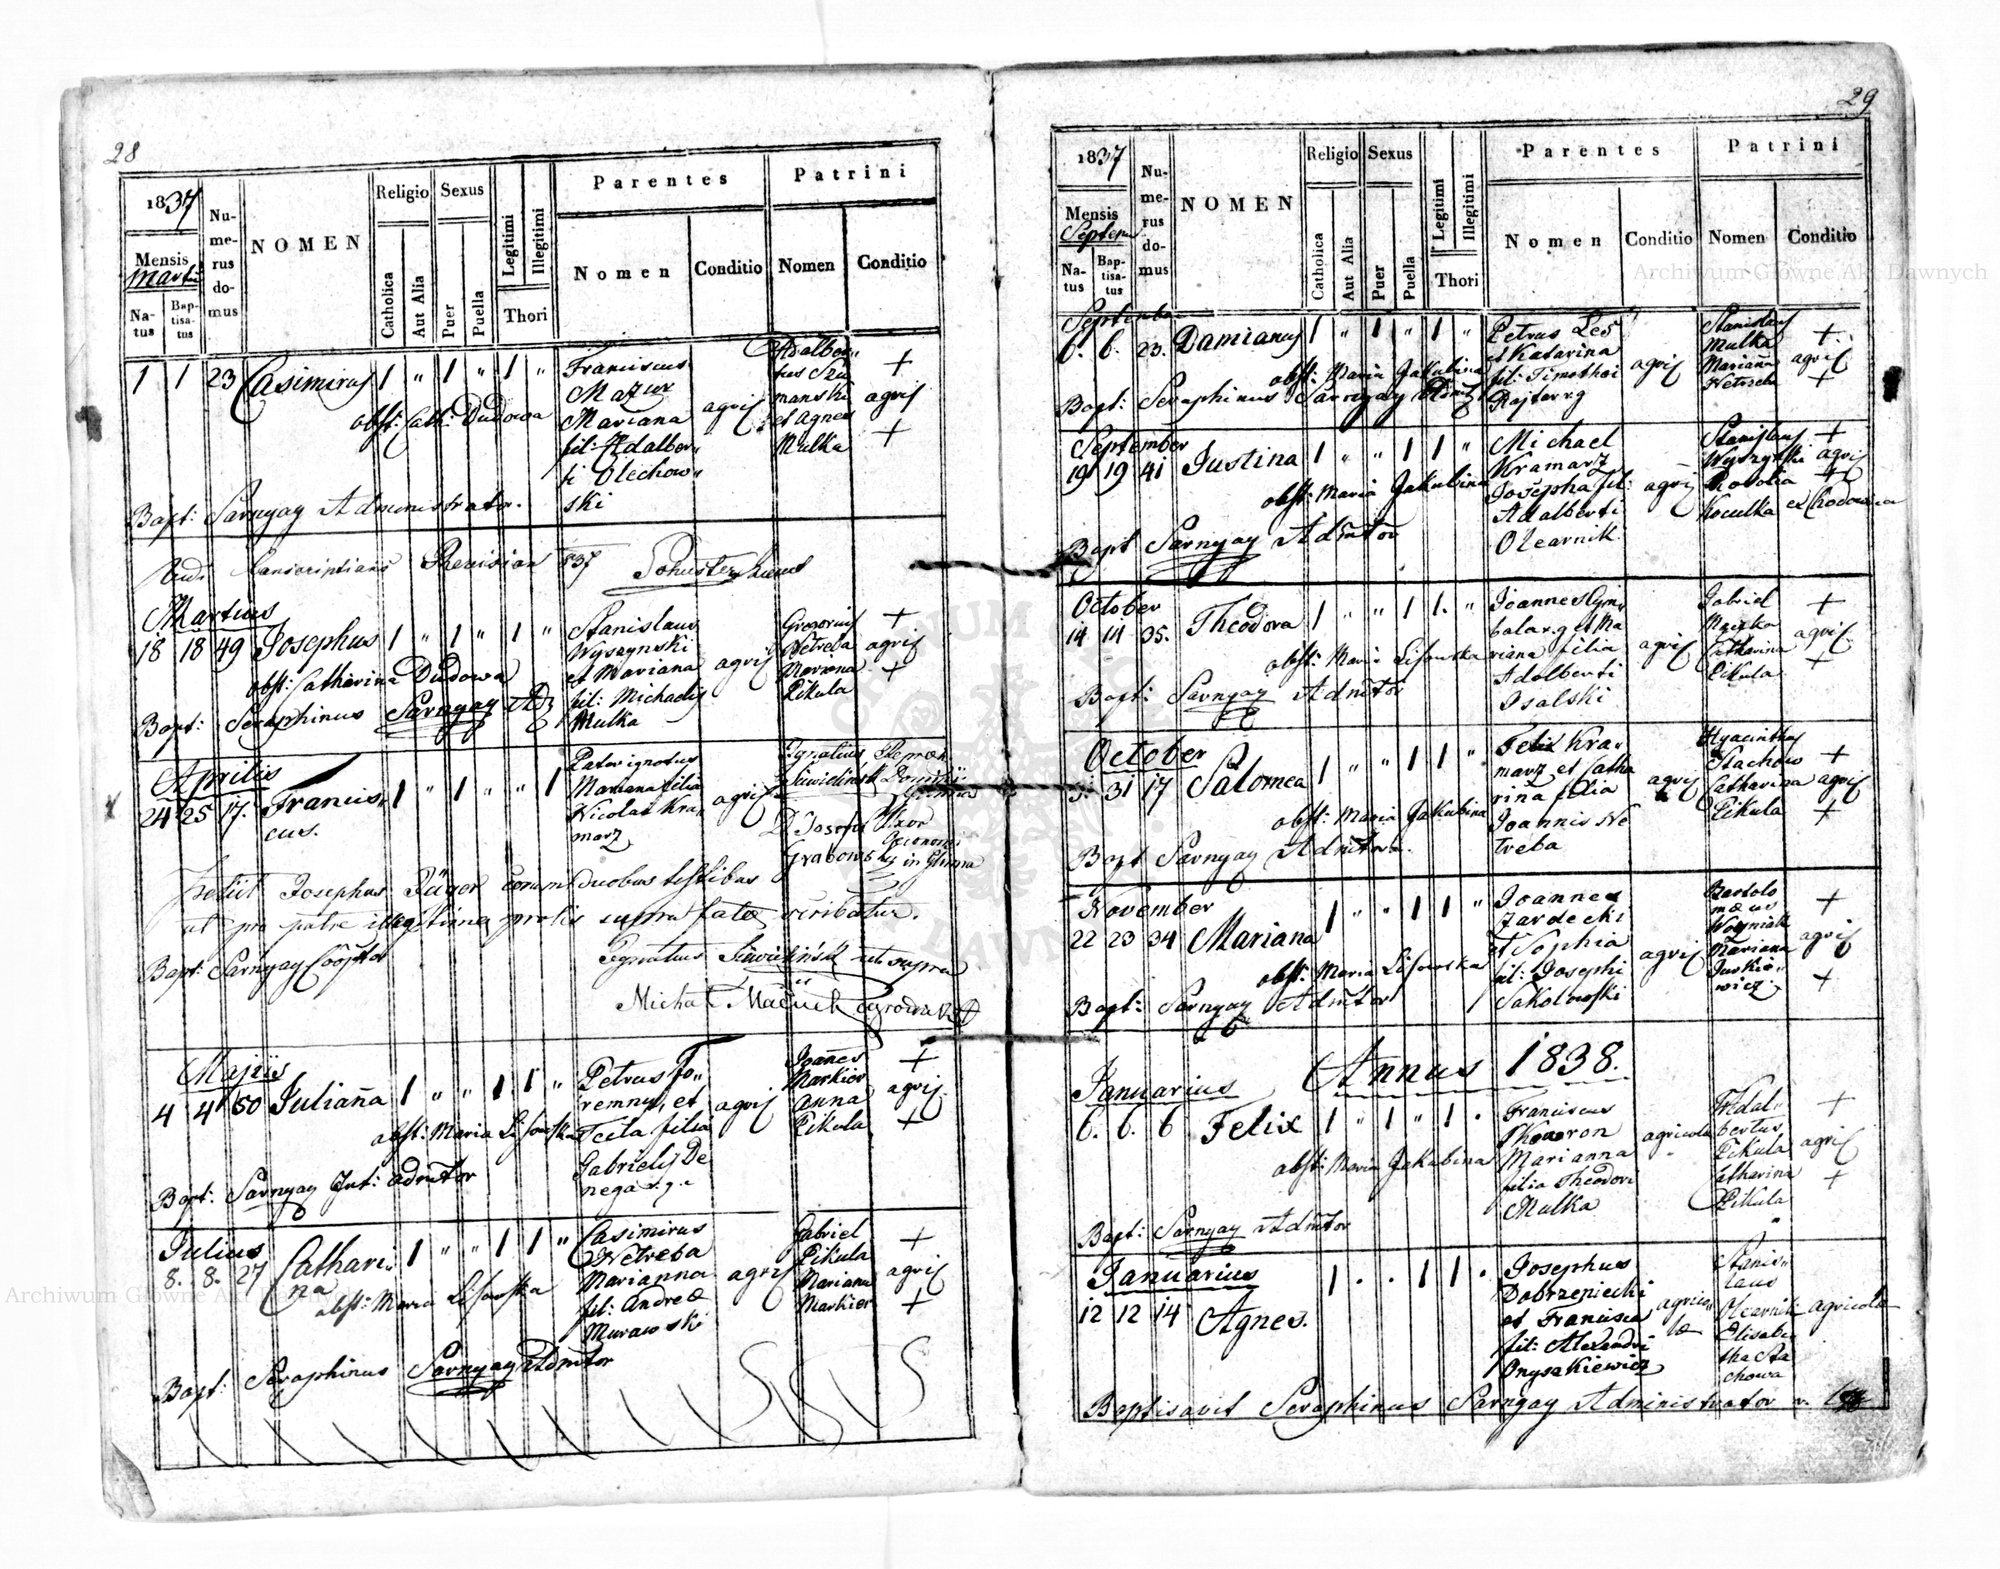 28
1837
Mensis
Marti
Natus
Baptisatus
Numerus domus
NOMEN
Religio
Catholica
Aut Alia
Sexus
Puer
Puella
Legitimi
Illegitimi
Thori
Parentes
Nomen
Conditio
Patrini
Nomen
Conditio
1 1 23 Casimirus 1 " 1 " 1 "
obst: Cath: Dudowa
Franciscus
Mazur
Mariana
fil: Adalber„
ti Olechow„
ski
agric
Adalber„
tus Szu
manski
et Agnes
Mulka
+
agric
+
Bapt: Sarnyay Administrator.
Revision 837
Martius
18 18 49 Josephus 1 " 1 " 1 "
obst: Catharina Dudowa
Stanislaus
Wyszynski
et Mariana
fil: Michaelis
Mulka
agric
Gregorius
Netreba
Mariana
Pikula
+
agric
+
Bapt: Seraphinus Sarnyay
Aprilis
24 25 17. Francis„
cus.
1 " 1 " " 1
Pater ignotus
Mariana filia
Nicolai Kra„
marz
agric
Ignatius
D Josepha Uxor
Grabowski
petiit Josephus Jäger coram duobus testibus
ut pro patre illegitimæ prolis supra fatæ scribatur.
Bapt: Sarnyay Cooptor
Ignatius ut supra
Michał
Majus
4 4 50 Juliana 1 " " 1 1 "
obst: Maria Lisowska
Petrus Jo„
remny, et
Tecla filia
Gabrielis De
nega r.g.
agric
Joanes
Markier
Anna
Pikula
+
agric
+
Bapt: Sarnyay Int: admtor
Julius
8. 8. 27 Cathari„
na
1 " " 1 1 "
obst: Maria Lisowska
Casimirus
Netreba
Marianna
fil: Andreæ
Murawski
agric
Gabriel
Pikula
Mariana
Markier
+
agric
+
Bapt: Seraphinus Sarnyay Admtor
29
1837
Mensis
Septem
Natus
Baptisatus
Numerus domus
NOMEN
Religio
Catholica
Aut Alia
Sexus
Puer
Puella
Legitimi
Illegitimi
Thori
Parentes
Nomen
Conditio
Patrini
Nomen
Conditio
September
6. 6. 23. Damianus 1 " 1 " 1 "
obst: Maria Jakubina
Petrus Les
et Katarina
fil: Timothei
Rajter r.g
agric
Stanislaus
Mulka
Mariana
Netreba
+
agric
+
Bapt: Seraphinus Sarnyay Admt
September
19 19 41 Justina 1 " " 1 1 "
obst: Maria Jakubina
Michael
Kramarz
Josepha fil:
Adalberti
Olearnik
agric
Stanislaus
Wyszynski
Rosalia
Koculka ex Chodowa
+
agric
+
Bapt Sarnyay Admtor
October
14 14 35. Theodora 1 " " 1 1. "
obst: Maria Lisowska
Joannes Cym„
bala r.g et Ma
riana filia
Adalberti
Isalski
agric
Gabriel
Catharina
Pikula
+
agric
+
Bapt: Sarnyay Admtor
October
31 17 Salomea 1 " " 1 1 "
obst: Maria Jakubina
Felix Kra„
marz et Catha
rina filia
Joannis Ne
treba
agric
Hyacinthus
Stachow
Catharina
Pikula
+
agric
+
Bapt Sarnyay Admtor.
November
22 23 34 Mariana 1 " " 1 1 "
obst: Maria Lisowska
Joannes
Zardecki
et Sophia
fil: Josephi
Sakolowski
agric
Bartolo
mæus
Woyniak
Mariana
Juskie„
wicz
+
agric
+
Bapt: Sarnyay Admtor
Annus 1838.
Januarius
6. 6. 6 Felix 1 " 1 " 1 "
obst: Maria Jakubina
Franciscus
Skowron
Marianna
filia Theodori
Mulka
agricola
Adal„
bertus
Pikula
Catharina
Pikula
+
agric
+
Bapt: Sarnyay Admtor
Januarius
12 12 14 Agnes. 1 . . 1 1 .
Josephus
Dobrzeniecki
et Francisca
fil: Alexandri
Onyszkiewicz
agrico„
læ
Stanis„
laus
Olearnik
Elisabe
tha Sta
chowa
agricola
Baptisavit Seraphinus Sarnyay Administrator
Archiwum Główne Akt Dawnych
Archiwum Główne Akt Dawnych